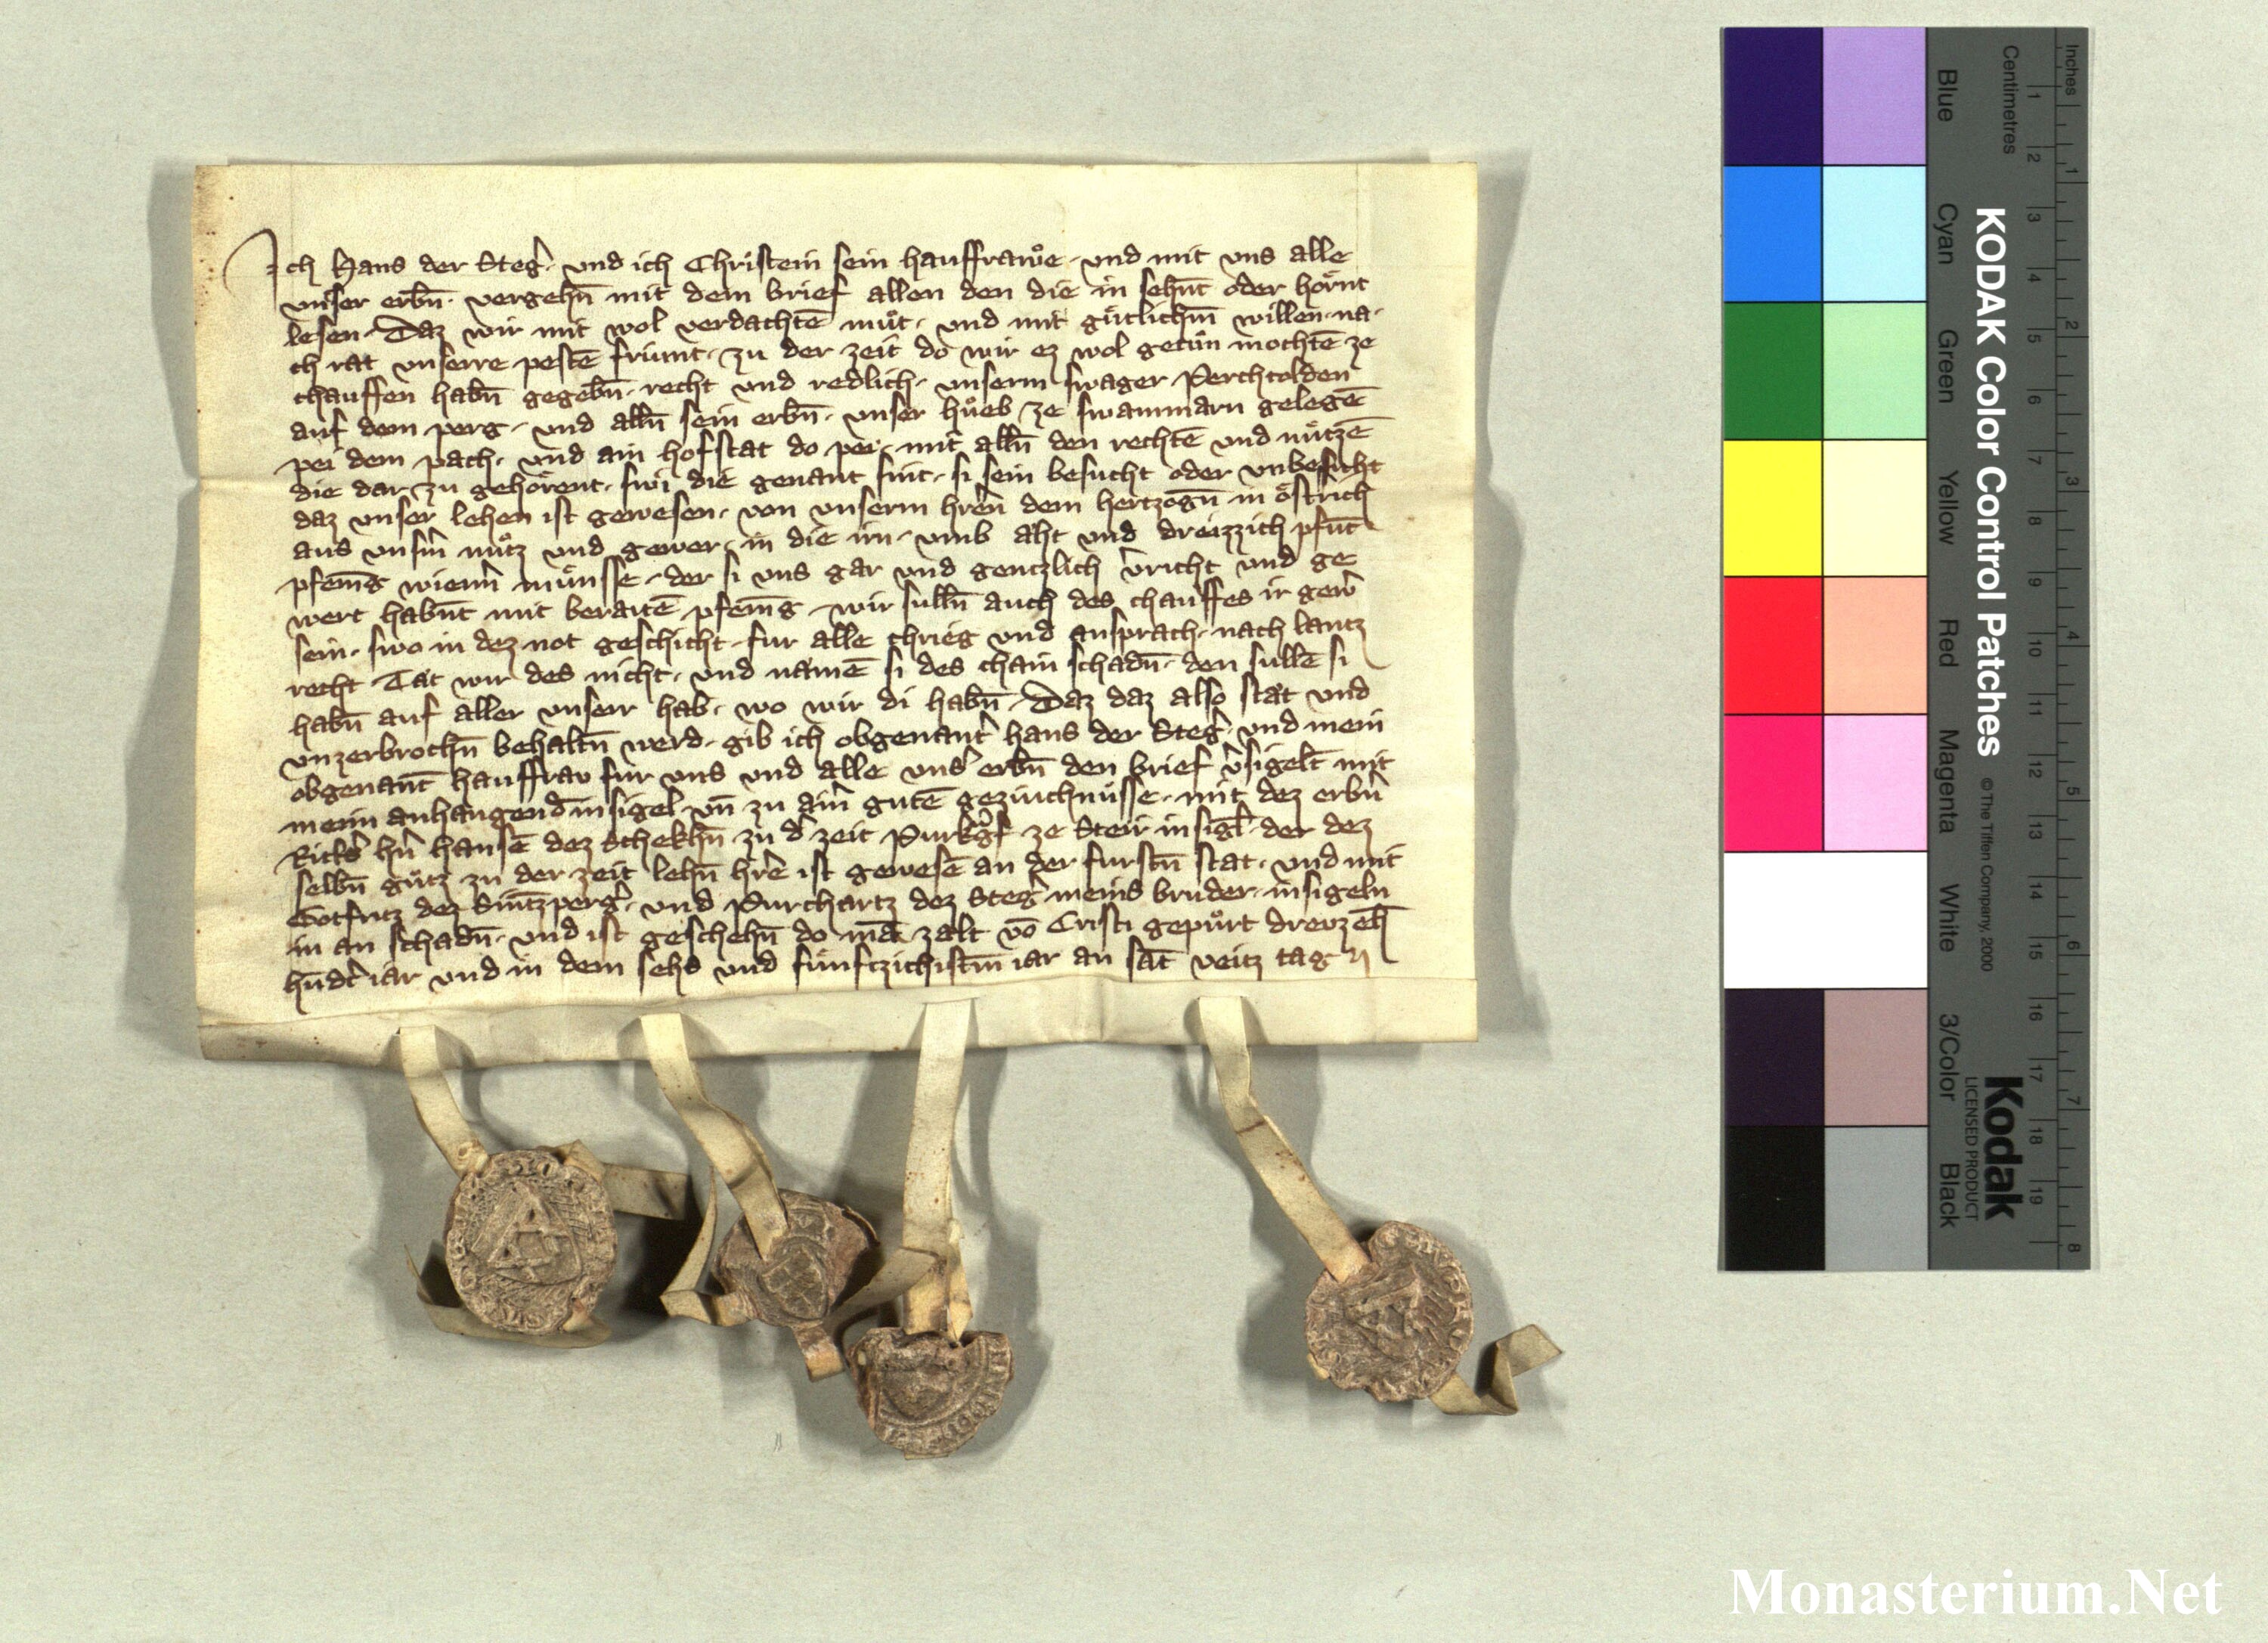 Ich Hans der Steg̉ · und ich Christein sein hauffrawͦe · und mit uns alle
unser erbn̄ · vergehn̄ mit dem brief allen den die in sehn̄t oder hoͤrnt
lesen · Daz wir mit wol verdachtē muͦt · und mit guͤtlichm̄ willen · na ·
ch rat unserre pestē frunt · zu der zeit do wir ez wol getuͦn mochtē ze
chauffen habn̄ gegebn̄ · recht und redlich · unserm swager Perchtolden
auf dem perg · und alln̄ sein erbn̄ · unser huͦeb ze swammarn gelegē
pei dem pach · und ain hofstat do pei · mit alln̄ den rechtē und nuͤtzē
die dar zu gehoͤrent · swi die genant sint · si sein besucht oder unbesucht
daz unser lehen ist gewesen · von unserm hrēn dem hertzogn̄ in oͤstrich
aus unsm̉ nuͤtz und gewer · in die irn · umb aͤht und dreizzich pfūt
pfenn̄g wienn̉ muͤnsse · der si uns gar und gentzlich v̉richt und ge
wert habn̄t mit beraitē pfenn̄g · wir sulln̄ auch des chauffes ir gew̉
sein · swo in dez not geschicht · fur alle chrieg und ansprach · nach lantz
recht · Taͤt wir des nicht · und naͤmē si des chain schadn̄ · den sullē si
habn̄ auf aller unserr hab · wo wir di habn̄ · Daz daz also staͤt und
unzerbrochn̄ behaltn̄ werd · gib ich obgenant̉ hans der Steg̉ · und mein
obgenant̄ hauffrav fur uns und alle uns̉ erbn̄ den brief v̉sigelt̄ mit
meim anhangend̄ insigel · un̄ zu aim̉ gutē gezivchnuͤsse · mit dez erbn̉
Ritt̉s hn̉ hansē dez Schekhn̄ zu d̉ zeit Purkg̉f ze Steir insigl̄ · der dez
selbn̄ guͦtz zu der zeit lehn̄ hrē ist gewesē an der furstn̄ stat · und mit
Gotfritz dez Sintzperg̉ · und Purchartz dez Steg̉ meins bruder · insigeln
in an schadn̄ · und ist geschehn̄ do man zalt vō Cristi gepuͦrt drevzeh̄
hūdt̉ iar und in dem sehs und fuͤnftzichistm̄ iar an sāt veitz tag
Inches
Centimetres
1 2 3 4 5 6 7 8 9 10 11 12 13 14 15 16 17 18 19
1 2 3 4 5 6 7 8
Blue Cyan Green Yellow Red Magenta White 3/Color Black
KODAK Color Control Patches © The Tiffen Company, 2000
Kodak
LICENSED PRODUCT
Monasterium.Net